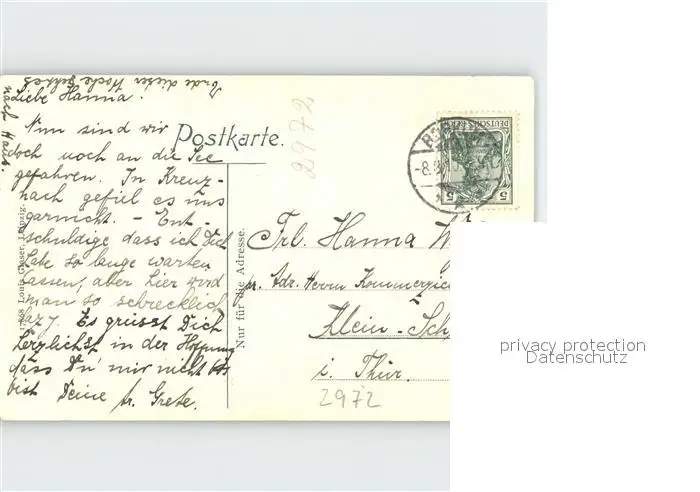 Ende dieser Woche gehts
nach Haus.
Liebe Hanna.
Nun sind wir
doch noch an die See
gefahren. In Kreuz-
nach gefiel es uns
garnicht. - Ent-
schuldige dass ich Dich
habe so lange warten
lassen, aber hier wird
man so schrecklich
Es grüsst Dich
herzlichst in der Hoffnung
dass Du mir nicht bös
bist Deine tr. Grete.
Postkarte.
2972
DEUTSCHES REICH
5 5
-8.8
17868 Louis Glaser, Leipzig.
Nur für die Adresse.
Frl. Hanna
pr. Adr. Herrn Kommerzie
Klein-Sch
i. Thür.
2972
privacy protection
Datenschutz